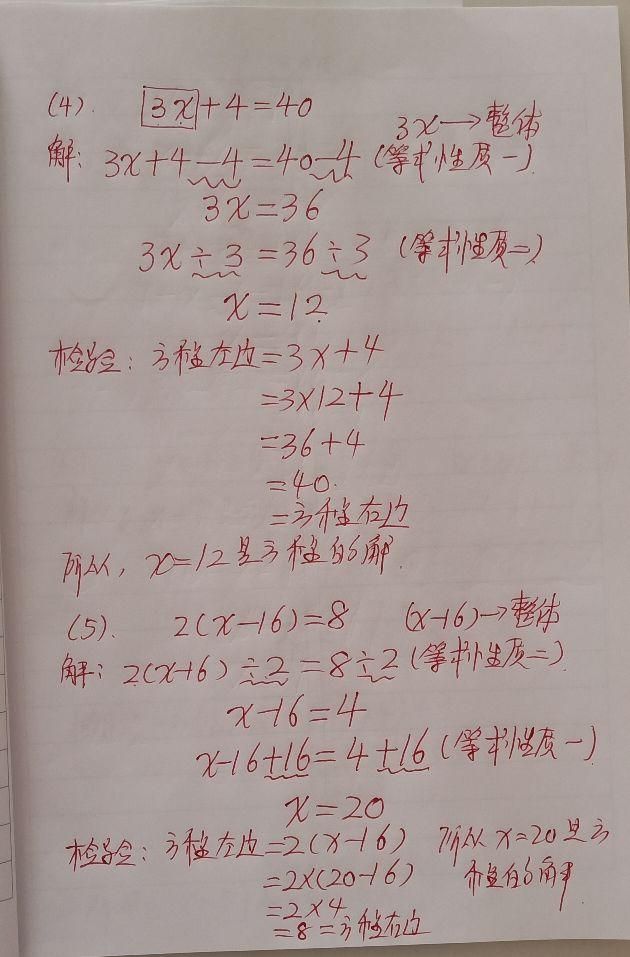 (4). 3x+4=40
3x→整体
解: 3x+4-4=40-4 (等式性质一)
3x=36
3x÷3=36÷3 (等式性质二)
x=12
检验: 方程左边=3x+4
=3×12+4
=36+4
=40.
=方程右边
所以, x=12是方程的解.
(5). 2(x-16)=8 (x-16)→整体
解: 2(x-16)÷2=8÷2 (等式性质二)
x-16=4
x-16+16=4+16 (等式性质一)
x=20
检验: 方程左边=2(x-16)
=2×(20-16)
=2×4
=8=方程右边
所以x=20是方
程的解